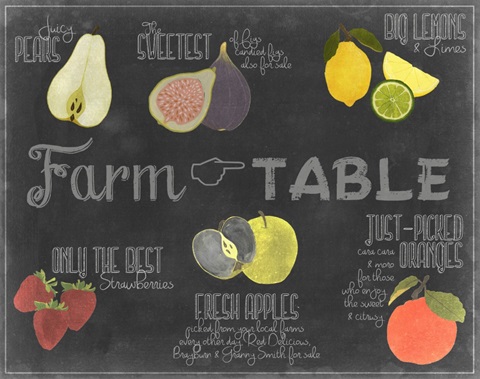 Juicy
PEARS
The
SWEETEST
of figs
candied figs
also for sale
BIG LEMONS
& Limes
Farm TABLE
ONLY THE BEST
Strawberries
FRESH APPLES
picked from your local farms
every other day. Red Delicious,
Brayburn & Granny Smith for sale
JUST-PICKED
ORANGES
cara cara
& moro
for those
who enjoy
the sweet
& citrusy